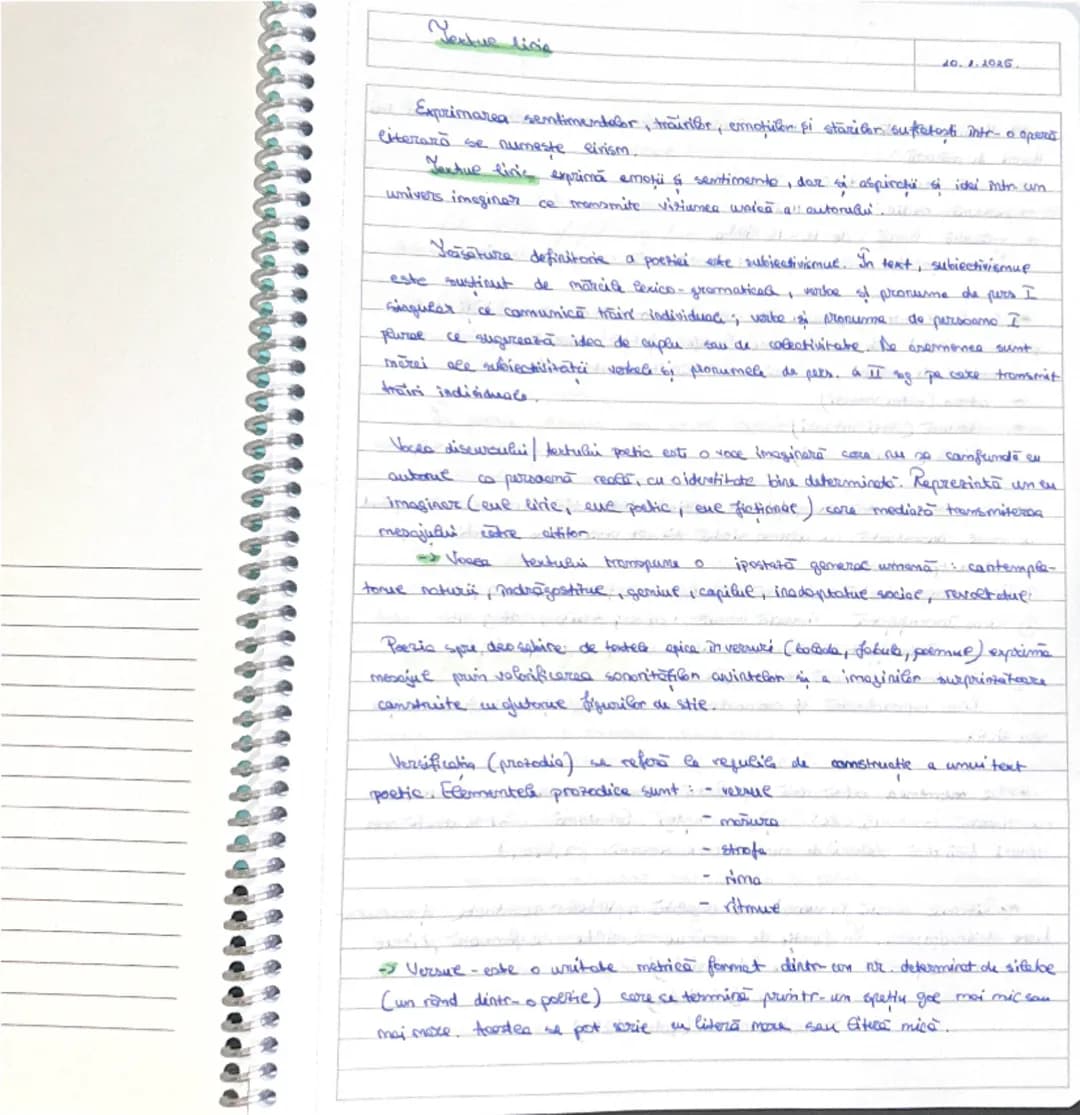 Textul liric
10.1.2025.
Exprimarea sentimentelor, trăirilor, emoțiilor și stărilor sufletești într-o operă
literară se numește lirism.
Textul liric exprimă emoții și sentimente, dar și aspirații și idei într-un
univers imaginar ce transmite viziunea unică a autorului.
Trăsătura definitorie a poeziei este subiectivismul. În text, subiectivismul
este susținut de mărcile lexico-gramaticale, verbe și pronume de pers I
singular ce comunică trăiri individuale; verbe și pronume de persoana I
plural ce sugerează idea de cuplu sau de colectivitate. De asemenea sunt
mărci ale subiectivității verbele și pronumele de pers. a II sg pe care transmit
trăiri individuale.
Vocea discursului/textului poetic este o voce imaginară care nu se confundă cu
autorul ca persoană reală, cu o identitate bine determinată. Reprezintă un eu
imaginar (eul liric, eul poetic, eul ficțional) care mediază transmiterea
mesajului către cititor.
-> Vocea textului transpune o ipostază general umană: contempla-
torul naturii, îndrăgostitul, geniul, copilul, inadaptatul social, revoltatul.
Poezia spre deosebire de textele epice în versuri (balada, fabula, poemul) exprimă
mesajul prin valorificarea sonorităților cuvintelor și a imaginilor surprinzătoare
construite cu ajutorul figurilor de stil.
Versificația (prozodia) se referă la regulile de construcție a unui text
poetic. Elementele prozodice sunt: - versul
- măsura
- strofa
- rima
- ritmul
-> Versul - este o unitate metrică format dintr-un nr. determinat de silabe
(un rând dintr-o poezie) care se termină printr-un spațiu gol mai mic sau
mai mare. Acestea se pot scrie cu literă mare sau literă mică.